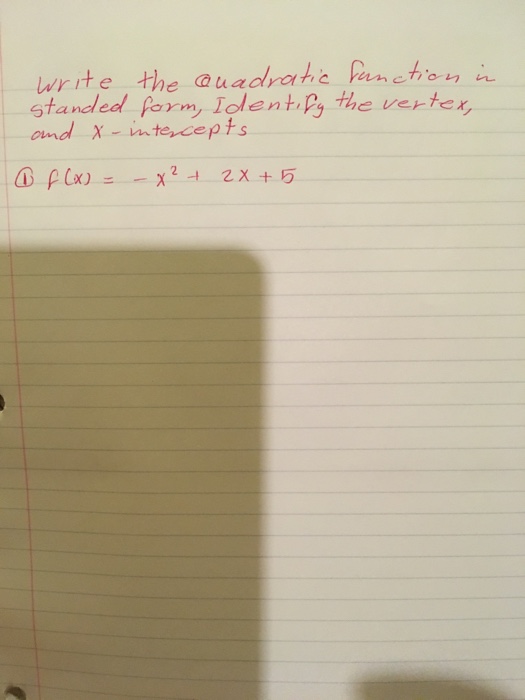 Write the Quadratic function in
standed form, Identify the vertex,
and x-intercepts
① f(x) = -x² + 2x + 5